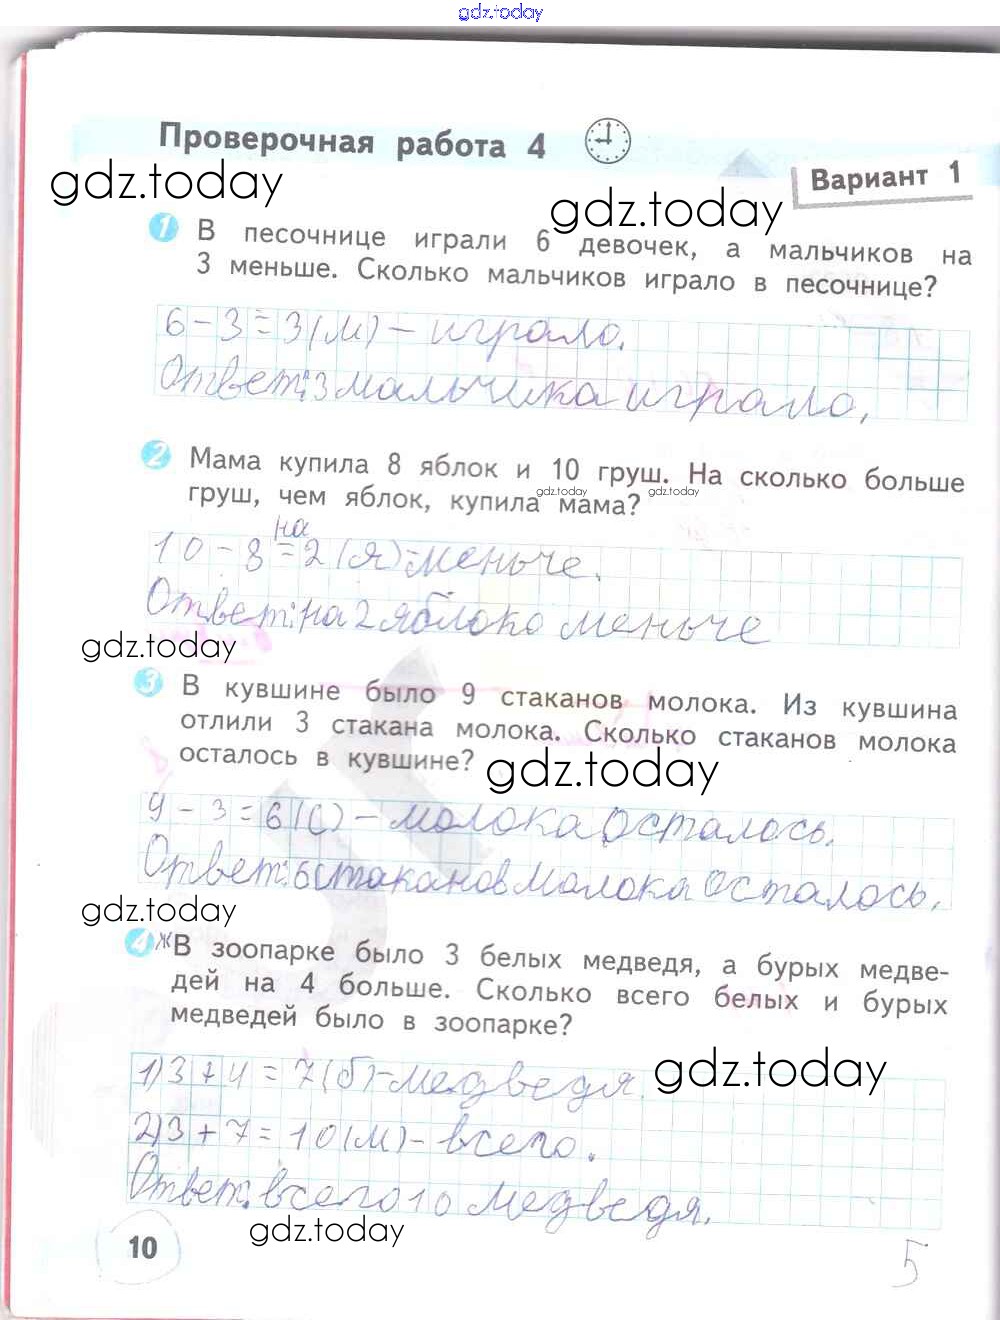 gdz.today
Проверочная работа 4
gdz.today
Вариант 1
gdz.today
1 В песочнице играли 6 девочек, а мальчиков на
3 меньше. Сколько мальчиков играло в песочнице?
6 - 3 = 3 (м) - играло.
Ответ: 3 мальчика играло.
2 Мама купила 8 яблок и 10 груш. На сколько больше
gdz.today gdz.today
груш, чем яблок, купила мама?
на
10 - 8 = 2 (я) - меньче.
Ответ: на 2 яблоко меньче
gdz.today
3 В кувшине было 9 стаканов молока. Из кувшина
отлили 3 стакана молока. Сколько стаканов молока
осталось в кувшине?
gdz.today
9 - 3 = 6 (с) - молока осталось.
Ответ: 6 стаканов молока осталось.
gdz.today
4 ж В зоопарке было 3 белых медведя, а бурых медве-
дей на 4 больше. Сколько всего белых и бурых
медведей было в зоопарке?
gdz.today
1) 3 + 4 = 7 (б) - медведя
2) 3 + 7 = 10 (м) - всего.
Ответ: всего 10 медведя.
gdz.today
10
5